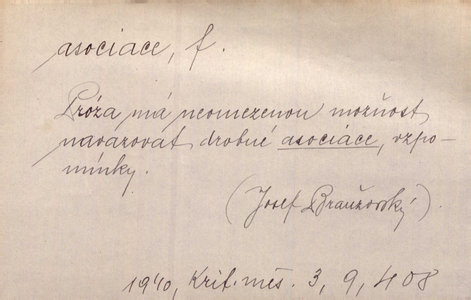 asociace, f.
Próza má neomezenou možnost
navazovat drobné asociace, vzpo-
mínky.
(Josef Braužovský).
1940, Krit. měs. 3, 9, 408